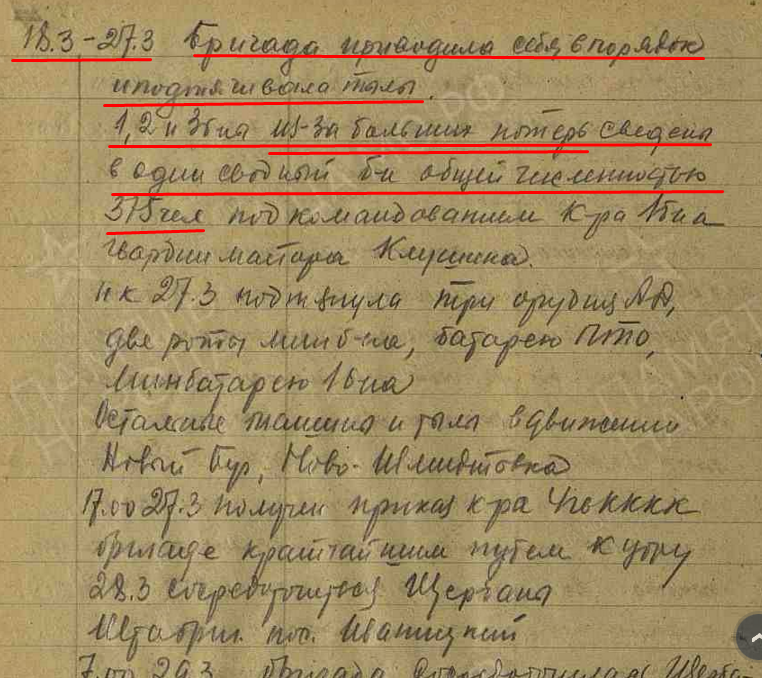 18.3-27.3 Бригада приводила себя в порядок
и подтягивала тылы.
1, 2 и 3 б-на из-за больших потерь сведены
в один сводный б-н общей численностью
375 чел под командованием к-ра 1 б-на
гвардии майора Клушина.
И к 27.3 подтянула три орудия АД,
две роты мин б-на, батарею ПТО,
минбатарею 1 б-на
Остальные машины и тылы в движении
Новый Буг, Ново-
17.00 27.3 получен приказ к-ра
бригаде кратчайшим путем к утру
28.3 сосредоточиться Щербаны
пос. Иваницкий
7.00 29.3 бригада сосредоточилась